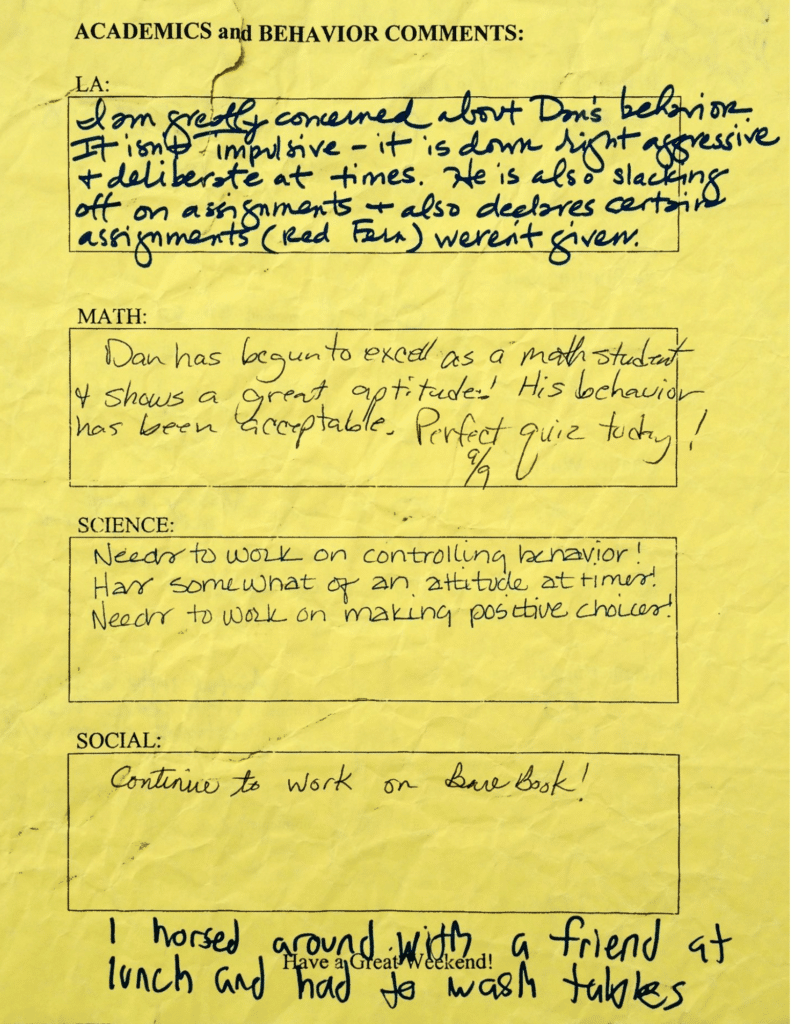 ACADEMICS and BEHAVIOR COMMENTS:
LA:
I am greatly concerned about Dan's behavior.
It isn't impulsive - it is down right aggressive
+ deliberate at times. He is also slacking
off on assignments + also declares certain
assignments (Red Fern) weren't given.
MATH:
Dan has begun to excell as a math student
& shows a great aptitude! His behavior
has been acceptable. Perfect quiz today!
9/9
SCIENCE:
Needs to work on controlling behavior!
Has somewhat of an attitude at times!
Needs to work on making positive choices!
SOCIAL:
Continue to work on Bare Book!
I horsed around with a friend at
Have a Great Weekend!
lunch and had to wash tables